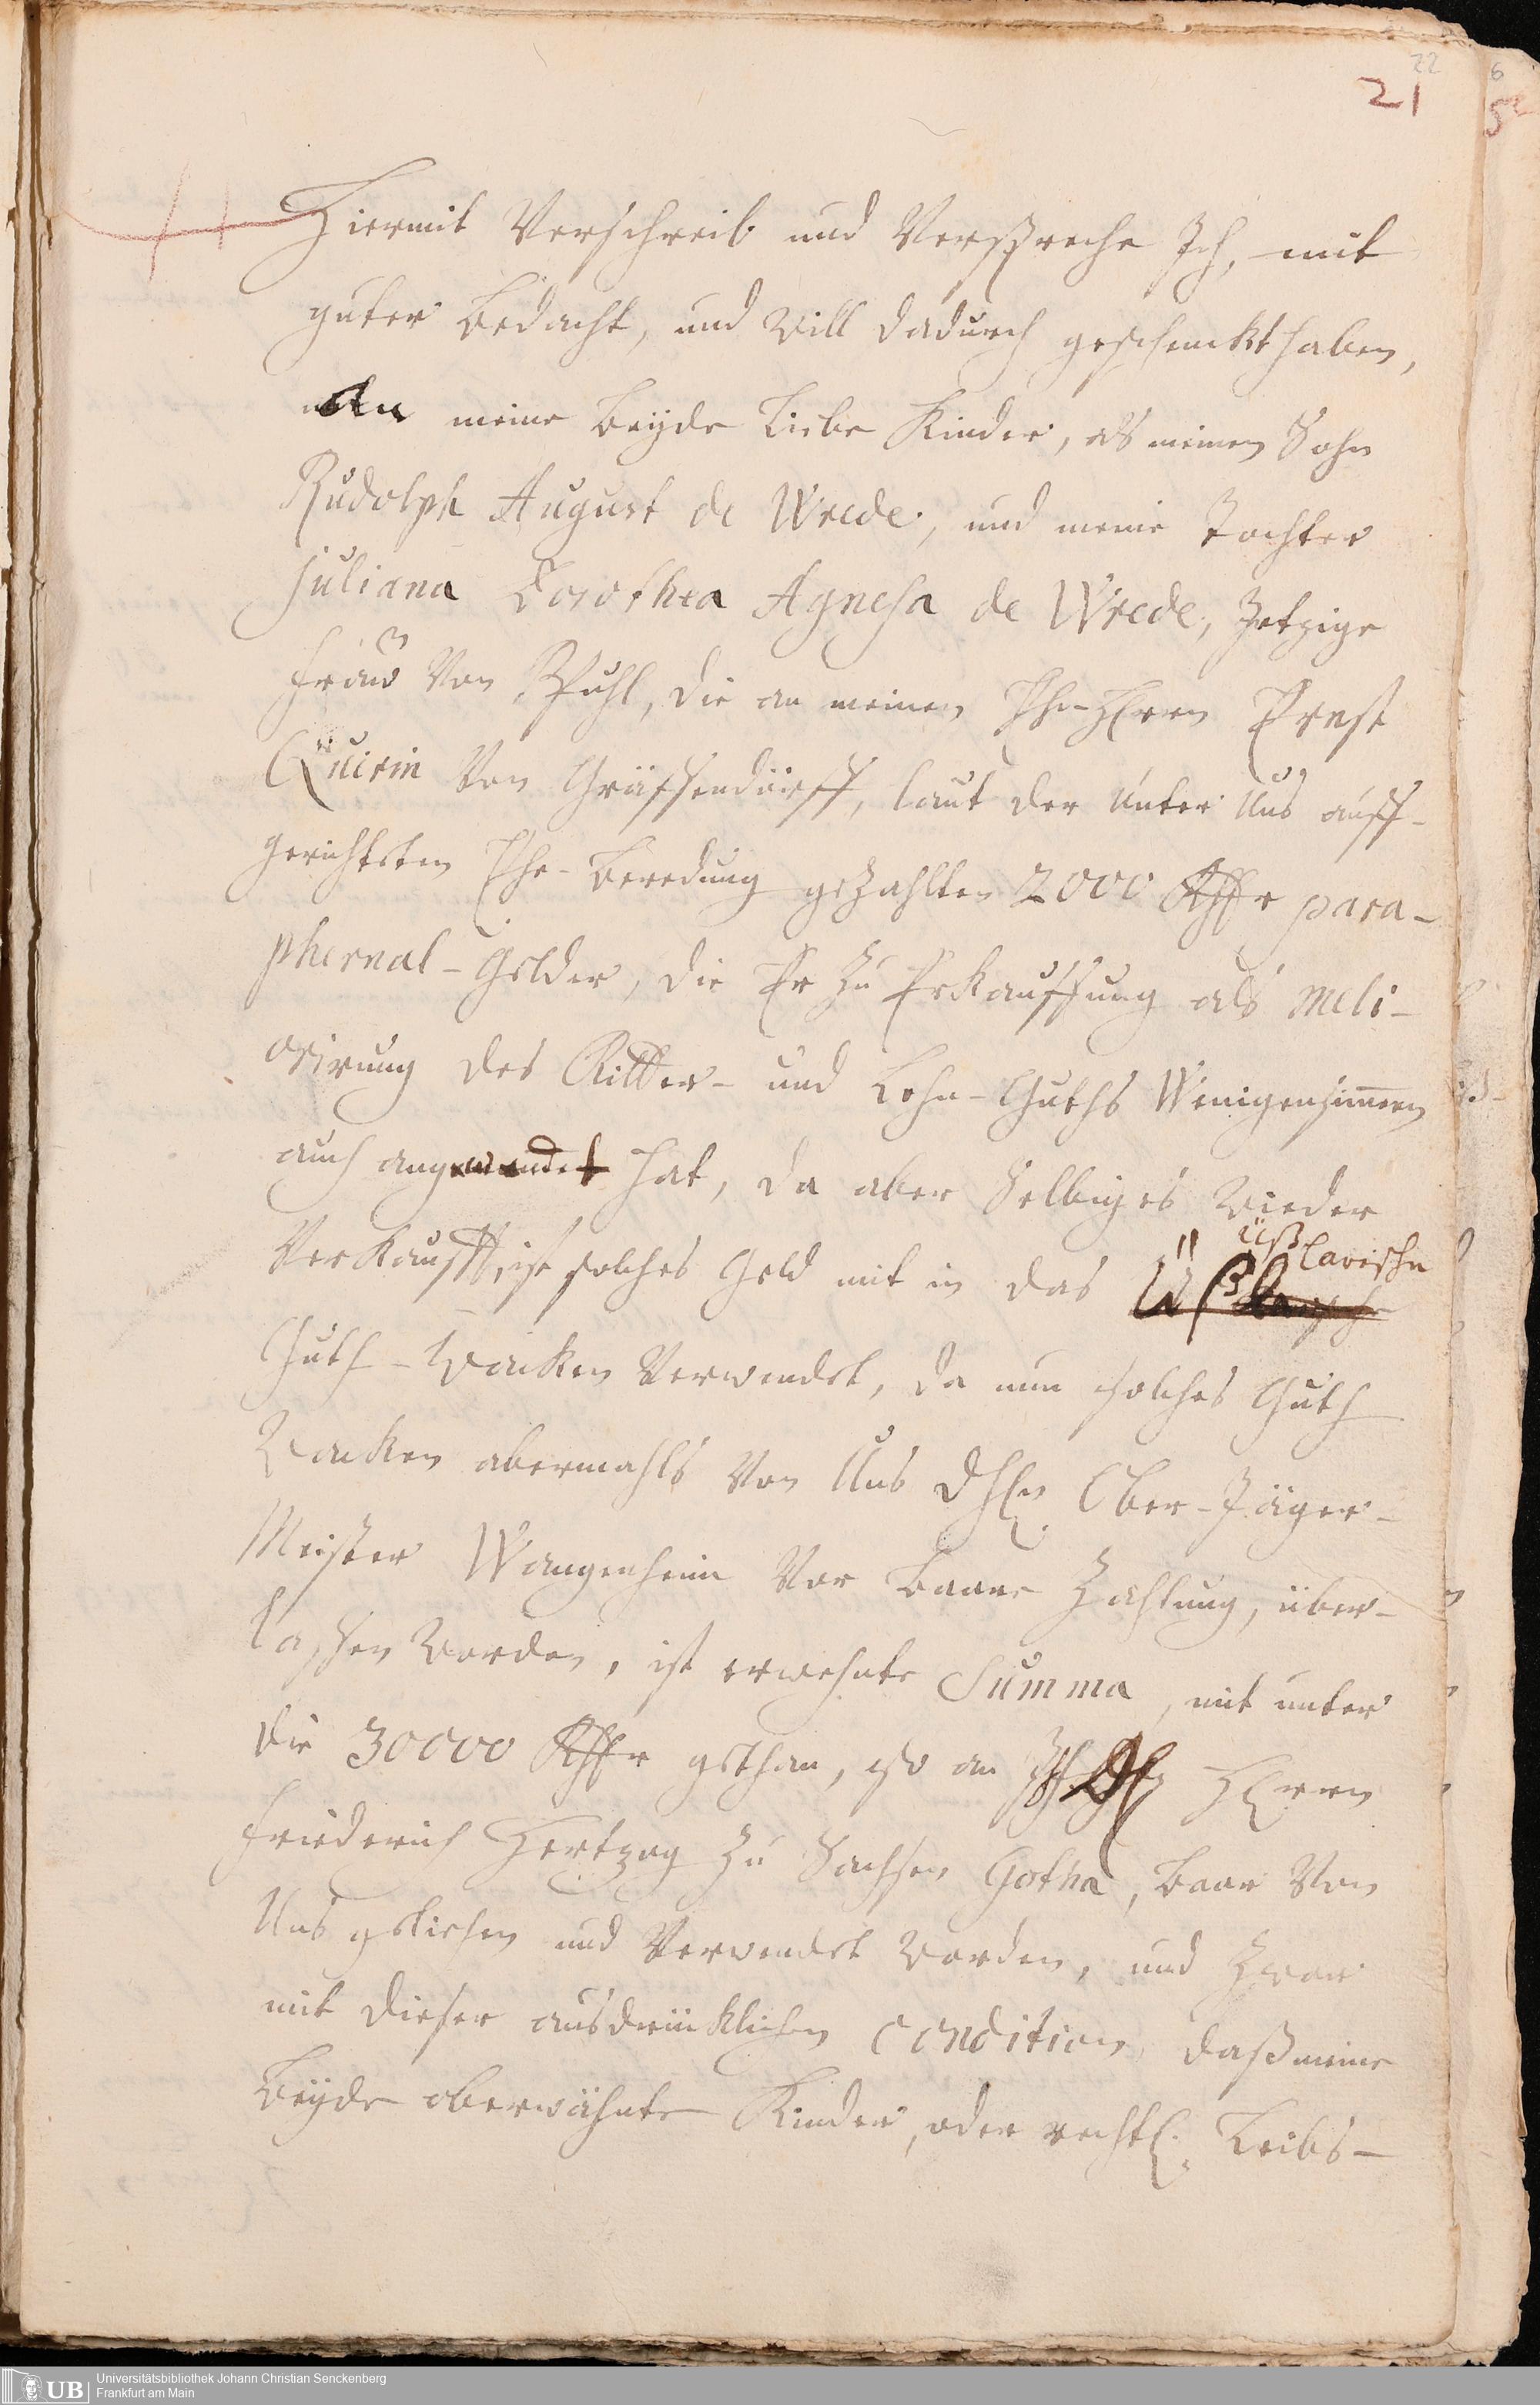 22
21
6
Hiermit Verschreib und Verspreche Ich, mit
guter bedacht, und will dadurch geschenckt haben,
an meine beyde Liebe Kinder, als meinen Sohn
Rudolph August de Wrede, und meine Tochter
Juliana Dorothea Agnesa de Wrede, Jetzige
Frau Von Puhl, die an meinen Ehe-Herrn Ernst
Quirin Von Gräffendorff, laut der Unter Uns auff-
gerichteten Ehe-beredung gezahlten 2000 Rthlr para-
phernal-Gelder, die Er zu Erkauffung als meli-
orirung des Ritter- und Lehn-Guths Wenigensimmern
auch angewendet hat, da aber Selbiges wieder
Verkaufft, ist solches Geld mit in das Ußlarische
Guth-Wacken Verwendet, da nun solches Guth
Wacken abermahls Von Uns Ober-Jäger-
Meister Wangenheim Vor baare Zahlung, über-
lassen worden, ist erwehnte Summa, mit unter
die 30000 Rthlr gethan, so an Herrn
Friederich Hertzog zu Sachsen Gotha, baar Von
Uns geliehen und Verwendet worden, und Zwar
mit dieser ausdrücklichen condition, daß meine
beyde oberwähnte Kinder, oder rechtl. Leibs-
UB
Universitätsbibliothek Johann Christian Senckenberg
Frankfurt am Main